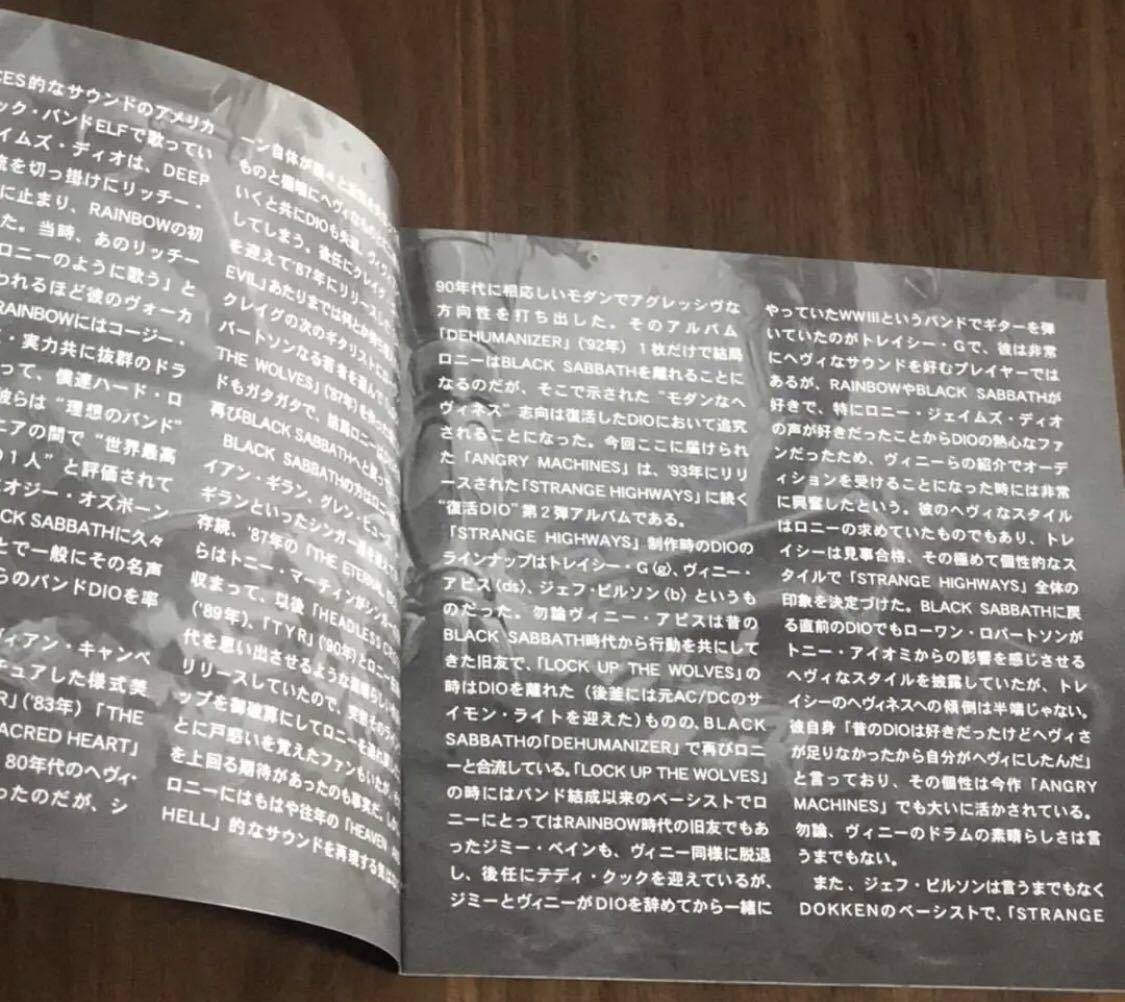 CES的なサウンドのアメリカ
ック・バンドELFで歌ってい
イムズ・ディオは、DEEP
を切っ掛けにリッチー・
に止まり、RAINBOWの初
た。当時、あのリッチー
ロニーのように歌う」と
われるほど彼のヴォーカ
RAINBOWにはコージー・
・実力共に抜群のドラ
って、僕達ハード・ロ
彼らは“理想のバンド”
ニアの間で“世界最高
の1人”と評価されて
オジー・オズボーン
CK SABBATHに久々
とで一般にその名声
らのバンドDIOを率
ヴィアン・キャンベ
チュアした様式美
R」('83年)「THE
ACRED HEART」
80年代のヘヴィ・
ったのだが、シ
ーン自体が
ものと
いくと共にDIOも失速。
してしまう。後任にクレイグ・
を迎えて'87年にリリースした
EVIL」あたりまでは何とか
クレイグの次のギタリストに
バートソンなる若者を選んで
THE WOLVES」('87年)を作った
ドもガタガタで、結局ロニーは
再びBLACK SABBATHへと
BLACK SABBATHの方はロニー
イアン・ギラン、グレン・ヒュー
ギランといったシンガー
存続、'87年の「THE ETERNAL
らはトニー・マーティンがシンガー
収まって、以後「HEADLESS CROSS」
('89年)、「TYR」('90年)とロニー
代を思い出させるような素晴らしい
リリースしていたので、突然そのライン
ップを御破算にしてロニーを
とに戸惑いを覚えたファンもいたが、
を上回る期待があったのも事実だ。しかし
ロニーにはもはや往年の「HEAVEN AND
HELL」的なサウンドを再現する気は
90年代に相応しいモダンでアグレッシヴな
方向性を打ち出した。そのアルバム
「DEHUMANIZER」('92年) 1枚だけで結局
ロニーはBLACK SABBATHを離れることに
なるのだが、そこで示された“モダンなヘ
ヴィネス”志向は復活したDIOにおいて追究
されることになった。今回ここに届けられ
た「ANGRY MACHINES」は、'93年にリリ
ースされた「STRANGE HIGHWAYS」に続く
“復活DIO”第2弾アルバムである。
「STRANGE HIGHWAYS」制作時のDIOの
ラインナップはトレイシー・G〈g〉、ヴィニー・
アピス〈ds〉、ジェフ・ピルソン〈b〉というも
のだった。勿論ヴィニー・アピスは昔の
BLACK SABBATH時代から行動を共にして
きた旧友で、「LOCK UP THE WOLVES」の
時はDIOを離れた（後釜には元AC/DCのサ
イモン・ライトを迎えた）ものの、BLACK
SABBATHの「DEHUMANIZER」で再びロニ
ーと合流している。「LOCK UP THE WOLVES」
の時にはバンド結成以来のベーシストでロ
ニーにとってはRAINBOW時代の旧友でもあ
ったジミー・ベインも、ヴィニー同様に脱退
し、後任にテディ・クックを迎えているが、
ジミーとヴィニーがDIOを辞めてから一緒に
やっていたWWIIIというバンドでギターを弾
いていたのがトレイシー・Gで、彼は非常
にヘヴィなサウンドを好むプレイヤーでは
あるが、RAINBOWやBLACK SABBATHが
好きで、特にロニー・ジェイムズ・ディオ
の声が好きだったことからDIOの熱心なファ
ンだったため、ヴィニーらの紹介でオーデ
ィションを受けることになった時には非常
に興奮したという。彼のヘヴィなスタイル
はロニーの求めていたものでもあり、トレ
イシーは見事合格、その極めて個性的なス
タイルで「STRANGE HIGHWAYS」全体の
印象を決定づけた。BLACK SABBATHに戻
る直前のDIOでもローワン・ロバートソンが
トニー・アイオミからの影響を感じさせる
ヘヴィなスタイルを披露していたが、トレ
イシーのヘヴィネスへの傾倒は半端じゃない。
彼自身「昔のDIOは好きだったけどヘヴィさ
が足りなかったから自分がヘヴィにしたんだ」
と言っており、その個性は今作「ANGRY
MACHINES」でも大いに活かされている。
勿論、ヴィニーのドラムの素晴らしさは言
うまでもない。
また、ジェフ・ピルソンは言うまでもなく
DOKKENのベーシストで、「STRANGE